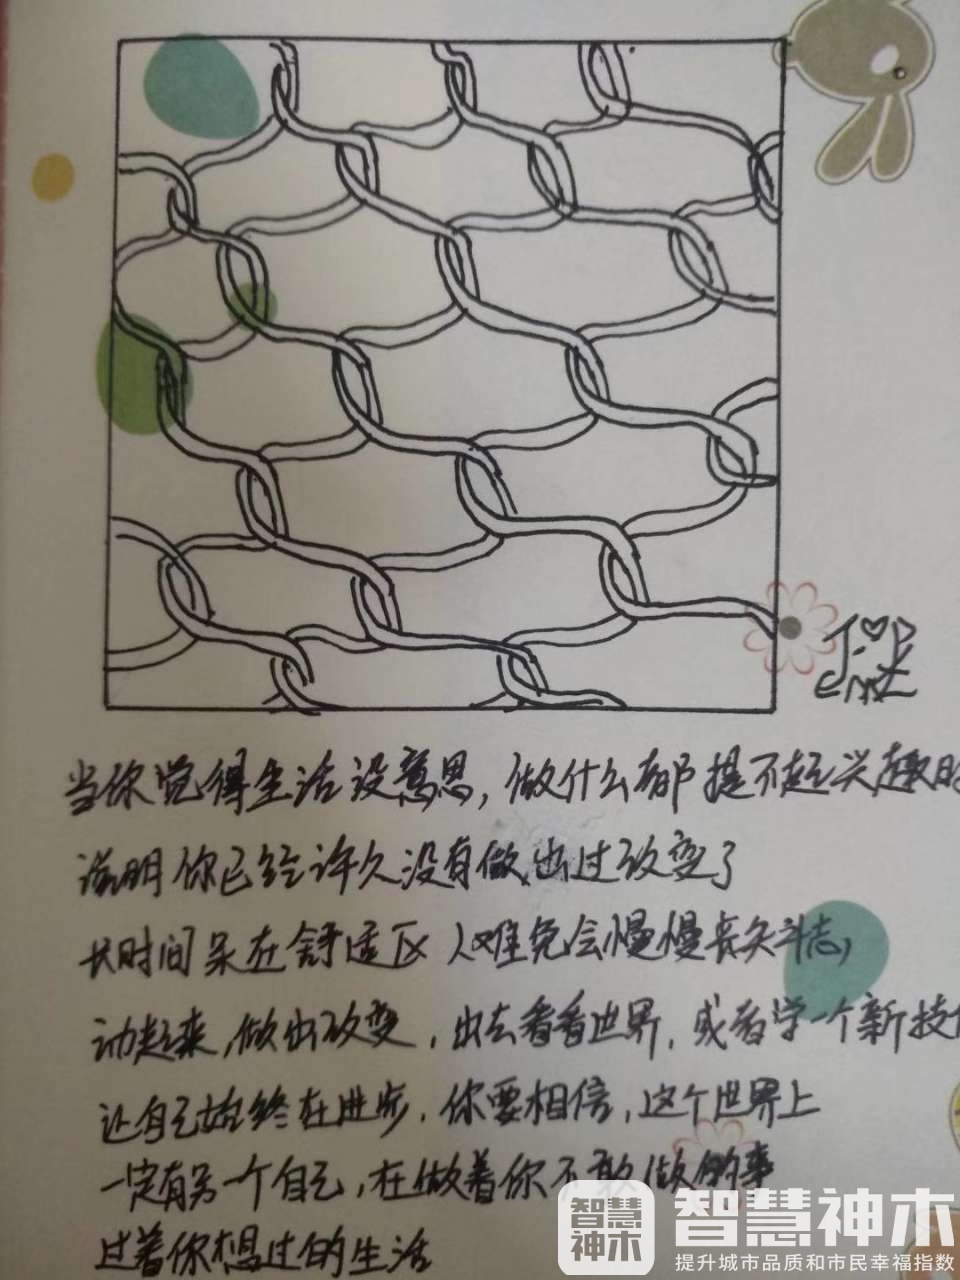 当你觉得生活没意思，做什么都提不起兴趣时
说明你已经许久没有做出过改变了
长时间呆在舒适区 人难免会慢慢丧失斗志，
动起来，做出改变，出去看看世界，或者学一个新技
让自己始终在进步，你要相信，这个世界上
一定有另一个自己，在做着你不敢做的事
过着你想过的生活
智慧神木
智慧神木
提升城市品质和市民幸福指数